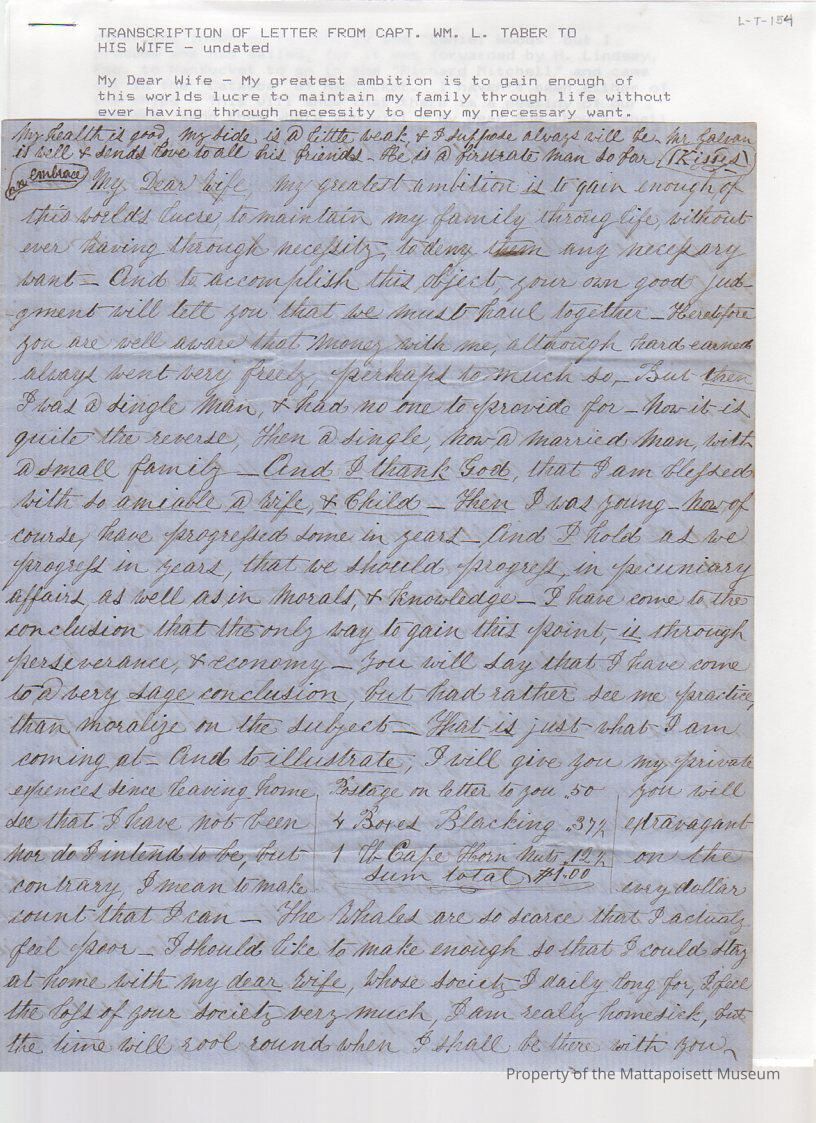 L-T-154
TRANSCRIPTION OF LETTER FROM CAPT. WM. L. TABER TO
HIS WIFE - undated
My Dear Wife - My greatest ambition is to gain enough of
this worlds lucre to maintain my family through life without
ever having through necessity to deny my necessary want.
My health is good, my side is a little weak, & I suppose always will be. Mr Galvan
is well & sends love to all his friends - He is a firstrate man so far (Kisses)
(an embrace) My Dear Wife, my greatest ambition is to gain enough of
this worlds lucre, to maintain my family throug life, without
ever having through necessity, to deny them any necessary
want - And to accomplish this object, your own good jud-
-gment will tell you that we must haul together - Heretofore
you are well aware that money with me, although hard earned
always went very freely, perhaps to much so, - But then
I was a single man, & had no one to provide for - Now it is
quite the reverse, Then a single, now a married man, with
a small family - And I thank God, that I am blessed
with so amiable a wife, & Child - Then I was young - now of
course, have progressed some in years - And I hold as we
progress in years, that we should progress, in pecuniary
affairs, as well as in morals, & knowledge - I have come to the
conclusion that the only way to gain this point, is through
perseverance, & economy - You will say that I have come
to a very sage conclusion, but had rather see me practice,
than moralize on the subject - That is just what I am
coming at - And to illustrate, I will give you my private
expences since leaving home, Postage on letter to you .50 You will
see that I have not been 4 Boxes Blacking .37½ extravagant
nor do I intend to be, but 1 lb Cape Horn Nuts .12½ on the
contrary, I mean to make Sum total $1.00 every dollar
count that I can - The Whales are so scarce that I actualy
feel poor - I should like to make enough so that I could stay
at home with my dear wife, whose society I daily long for, I feel
the loss of your society very much, I am really homesick, but
the time will rool round when I shall be there with you -
Property of the Mattapoisett Museum